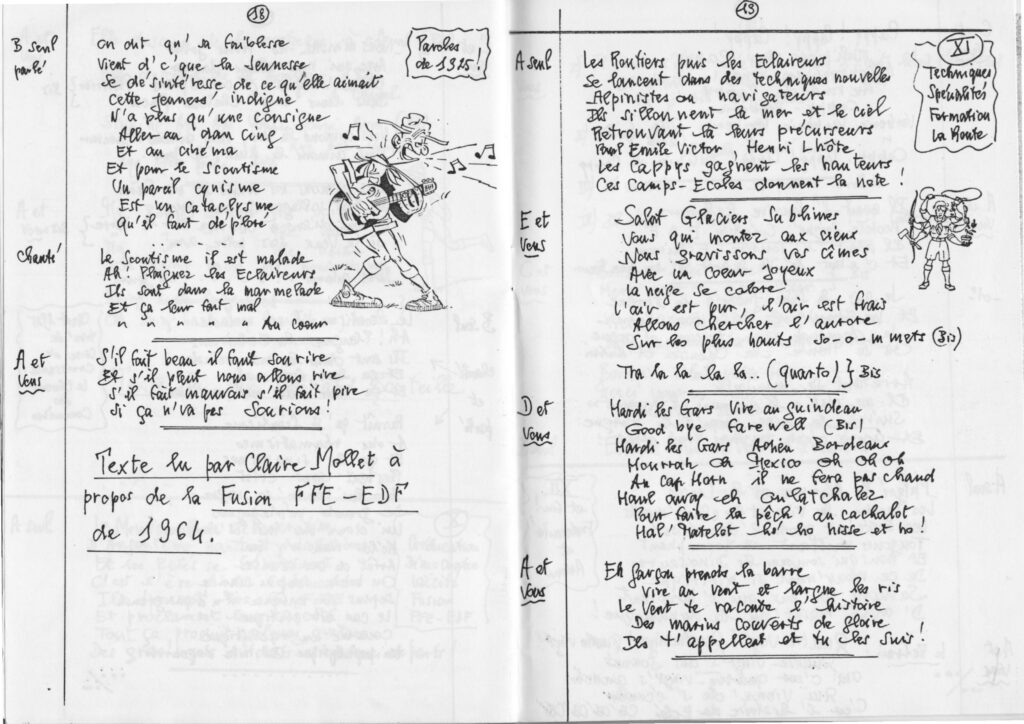 18
B seul
parlé
Paroles
de 1925!
on dit qu' sa faiblesse
Vient d'c'que la Jeunesse
Se désintéresse de ce qu'elle aimait
Cette jeuness' indigne
N'a plus qu'une consigne
Aller au dancing
Et au cinéma
Et pour le scoutisme
Un pareil cynisme
Est un cataclysme
Qu'il faut déploré
Chanté
Le scoutisme il est malade
Ah! Plaignez les Eclaireurs
Ils sont dans la marmelade
Et ça leur fait mal
" " " " " Au cœur
A et
Vous
S'il fait beau il faut sourire
Et s'il pleut nous allons rire
S'il fait mauvais s'il fait pire
Si ça n'va pas Sourions!
Texte lu par Claire Mollet à
propos de la Fusion FFE-EDF
de 1964.
19
XI
Techniques
Spécialités
Formation
La Route
A seul
Les Routiers puis les Eclaireurs
Se lancent dans des techniques nouvelles
Alpinistes ou navigateurs
Ils sillonnent la mer et le ciel
Retrouvant là leurs précurseurs
Paul Emile Victor, Henri Lhôte
Les Cappys gagnent les hauteurs
Ces Camps-Ecoles donnent la note!
E et
Vous
- Salut Glaciers Sublimes
Vous qui montez aux cieux
Nous gravissons vos cîmes
Avec un coeur joyeux
la neige se colore
L'air est pur, l'air est frais
Allons chercher l'aurore
Sur les plus hauts so-o-mmets (Bis)
Tra la la la la.. (quarto) } Bis
D et
Vous
Hardi les Gars Vire au guindeau
Good bye farewell (Bis)
Hardi les Gars Adieu Bordeaux
Hourrah Oh Mexico Oh Oh Oh
Au Cap Horn il ne fera pas chaud
Haul away eh oulatchalez
Pour faire la pêch' au cachalot
Hal' Matelot hé ho hisse et ho!
A et
Vous
Eh garçon prends la barre
Vire au vent et largue les ris
Le Vent te raconte l'histoire
Des marins couverts de gloire
Ils t'appellent et tu les suis!